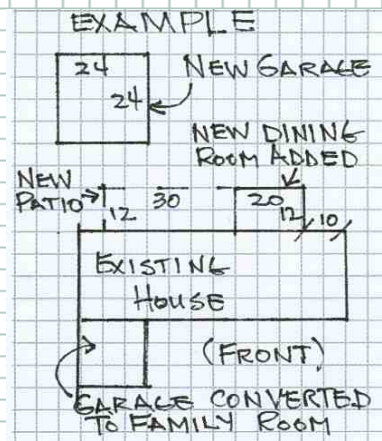 EXAMPLE
24
24
NEW GARAGE
NEW DINING
ROOM ADDED
NEW
PATIO
12
30
20
12
10
EXISTING
HOUSE
(FRONT)
GARAGE CONVERTED
TO FAMILY ROOM